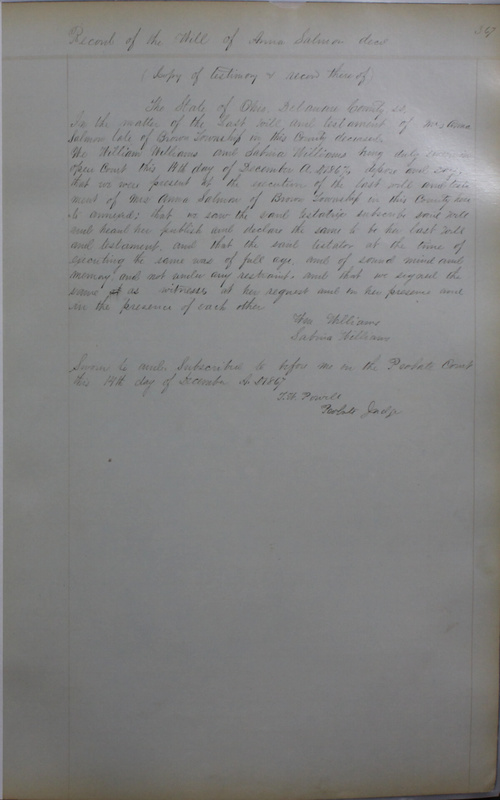 367
Record of the Will of Anna Salmon decd
(Copy of testimony & record thereof)
The State of Ohio, Delaware County, ss.
In the matter of the Last will and testament of Mrs Anna
Salmon late of Brown Township in this County deceased
We William Williams and Sabina Williams being duly sworn in
open Court this 14th day of December A.D. 1867, depose and say
that we were present at the execution of the last will and testa
ment of Mrs Anna Salmon of Brown Township in this County here
to annexed; that we saw the said testatrix subscribe said will
and heard her publish and declare the same to be her last will
and testament, and that the said testator at the time of
executing the same was of full age, and of sound mind and
memory, and not under any restraint - and that we signed the
same as witnesses at her request and in her presence and
in the presence of each other
Wm Williams
Sabina Williams
Sworn to and Subscribed to before me in the Probate Court
this 14th day of December A.D. 1867
T.W. Powell
Probate Judge